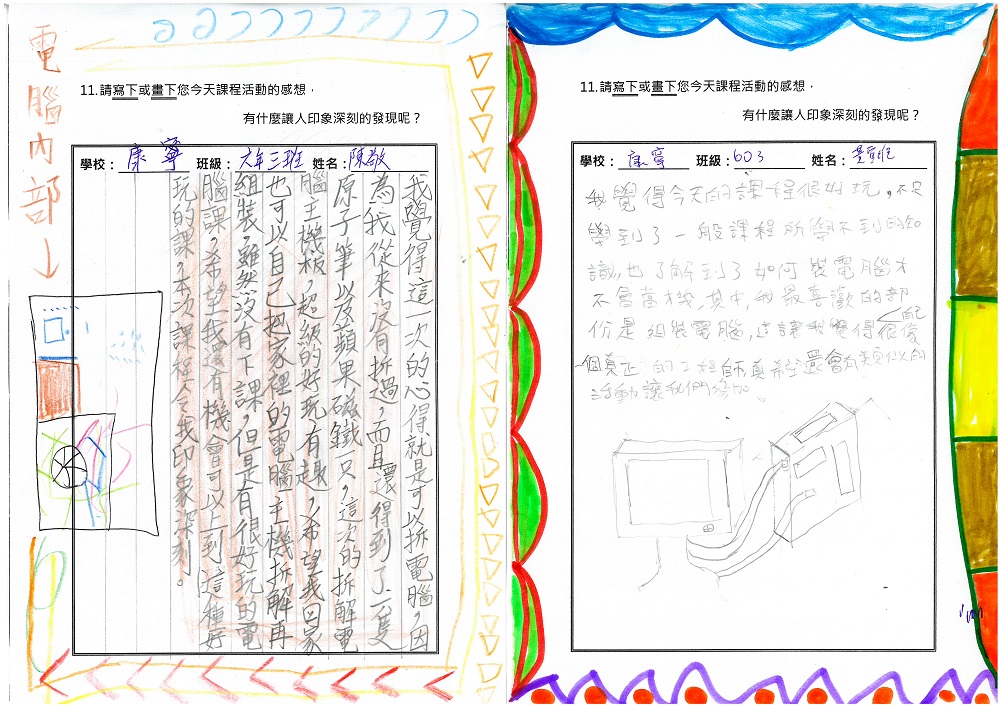 電腦內部↓
11.請寫下或畫下您今天課程活動的感想，
有什麼讓人印象深刻的發現呢？
學校：康寧 班級：六年三班 姓名：陳敬
我覺得這一次的心得就是可以拆電腦，因
為我從來沒有拆過，而且還得到了一隻
原子筆以及蘋果磁鐵一只，這次的拆解電
腦主機板，超級的好玩有趣，希望我回家
也可以自己把家裡的電腦主機拆解再
組裝，雖然沒有下課，但是有很好玩的電
腦課，希望我還有機會可以上到這種好
玩的課，本次課程令我印象深刻。
11.請寫下或畫下您今天課程活動的感想，
有什麼讓人印象深刻的發現呢？
學校：康寧 班級：603 姓名：
我覺得今天的課程很好玩，不只
學到了一般課程所學不到的知
識也了解到了如何裝電腦才
不會當機其中，我最喜歡的部
份是組裝電腦，這讓我覺得很像
一個真正的工程師真希望還會有類似的
活動讓我們參加。